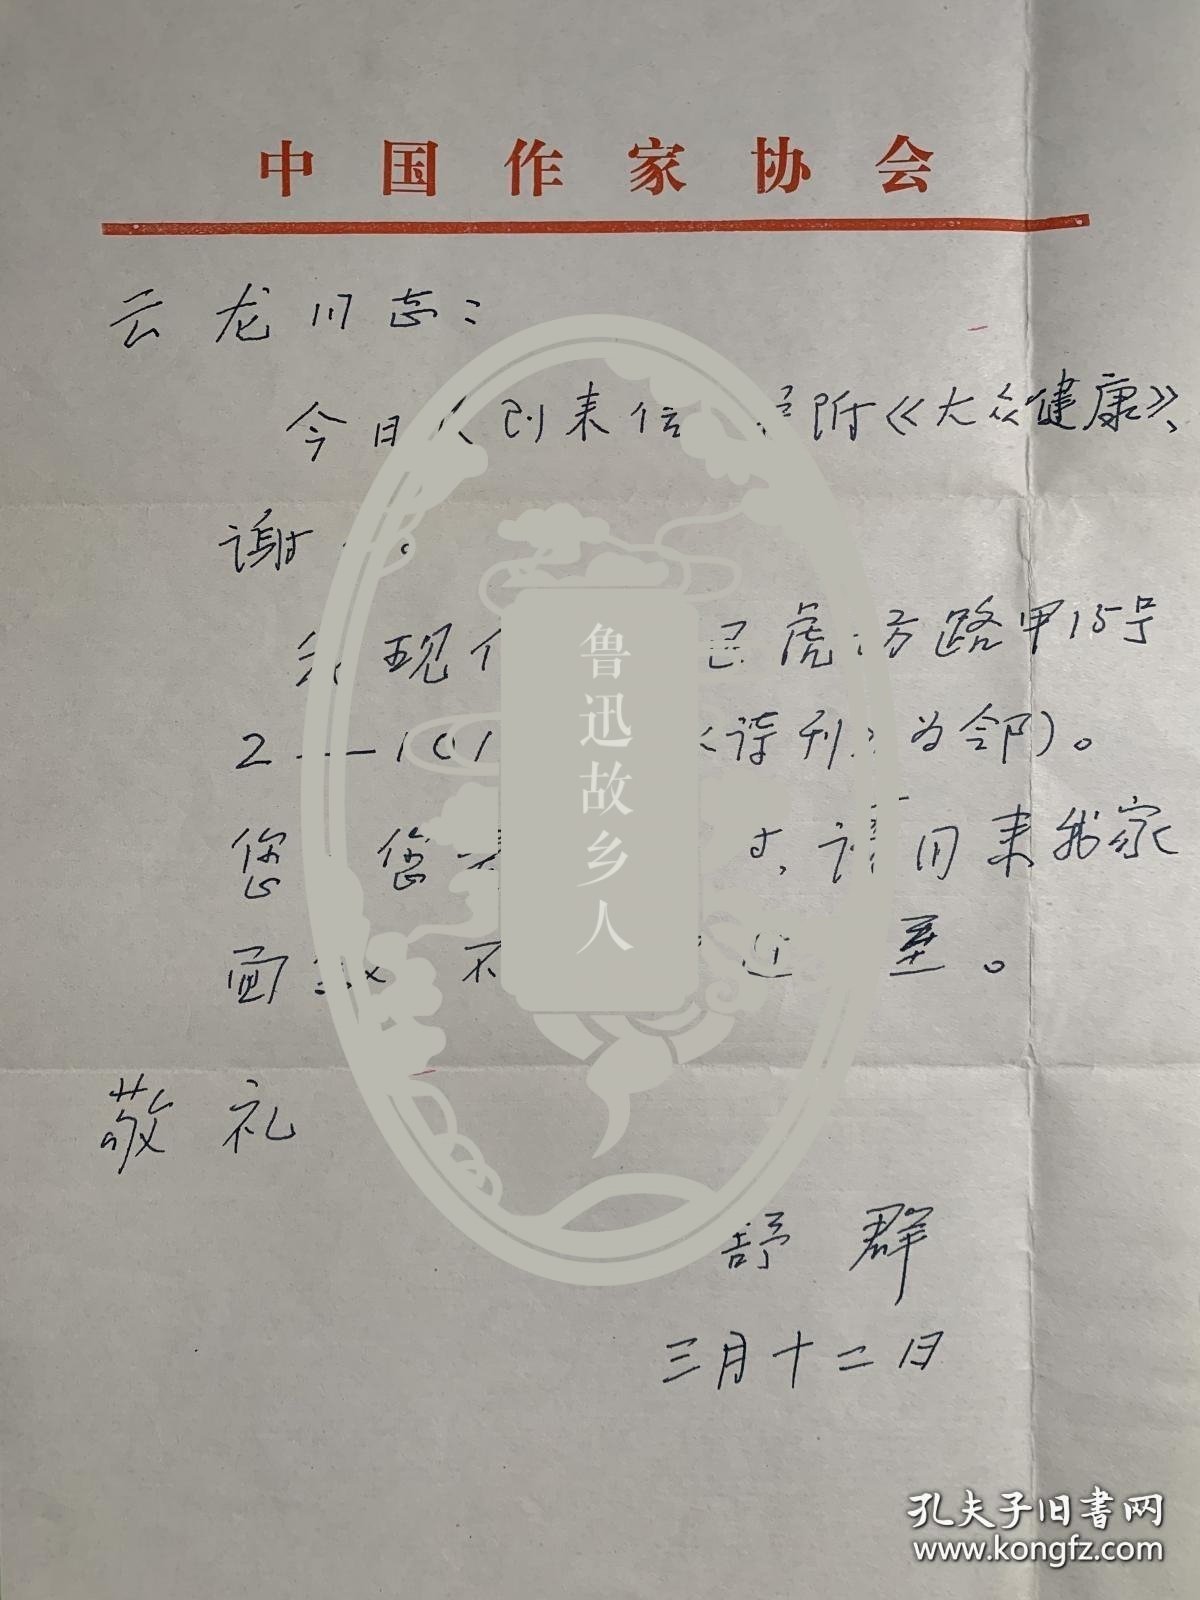 中国作家协会
云龙同志：
今日收到来信 附《大众健康》，
谢
现 虎坊路甲15号
2—101 《诗刊》为邻）。
您 您 请同来我家
面叙 不
敬礼
舒群
三月十二日
鲁迅故乡人
孔夫子旧书网
www.kongfz.com